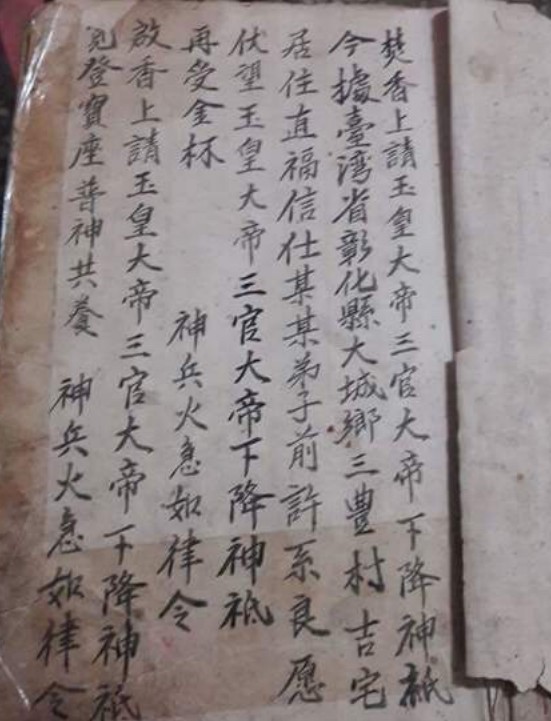 焚香上請玉皇大帝三官大帝下降神祇
今據臺湾省彰化縣大城鄉三豊村吉宅
居住直福信仕某某弟子前許系良愿
伏望玉皇大帝三官大帝下降神祇
再受金杯　神兵火急如律令
啟香上請玉皇大帝三官大帝下降神祇
見登寶座普神共養　神兵火急如律令